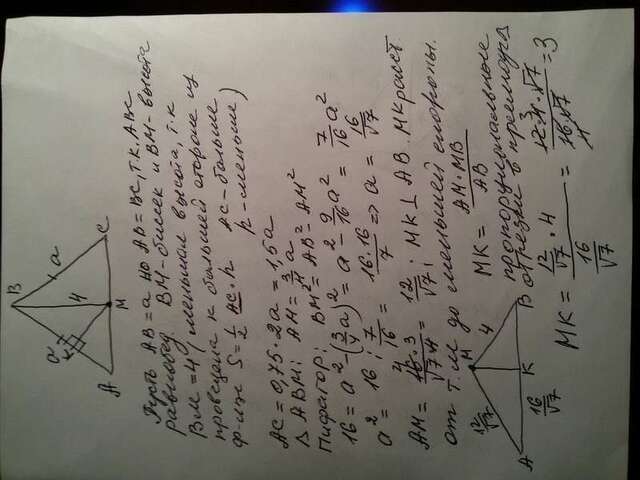 B
a
a
K
4
A
M
C
Пусть AB = a но AB = BC, т.к. ABC
равнобед. BM-биссек и BM-высота
BM = 4, меньшая высота, т.к
проведена к большей стороне из
ф-лы S = 1/2 AC · h AC-больше
h-меньше)
AC = 0,75 · 2a = 1,5a
Δ ABM; AM = 3/4 a
Пифагор; BM² = AB² - AM²
16 = a² - (3/4 a)² = a² - 9/16 a² = 7/16 a²
a² = 16 : 7/16 = 16·16/7 => a = 16/√7
AM = 16·3/√7·4 = 12/√7; MK ⊥ AB. MK расст.
от т. M до меньшей стороны.
MK = AM · MB / AB
пропорциональные
отрезки в прямоуг Δ
MK = 12/√7 · 4 / 16/√7 = 12·4·√7/16·√7 = 3
M
12/√7
4
A
K
B
16/√7